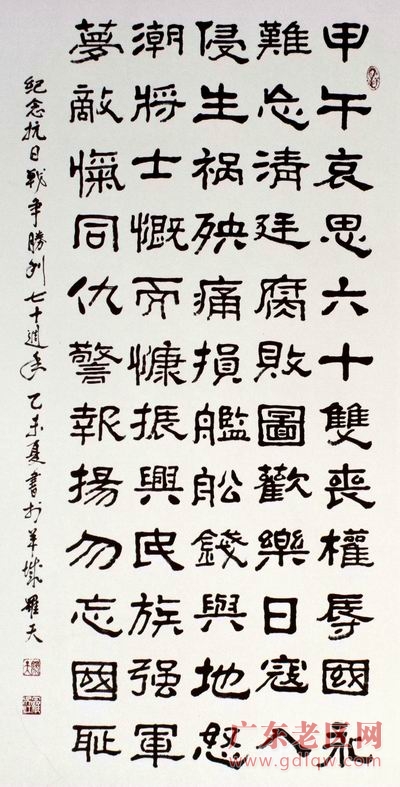 甲午哀思六十雙喪權辱國永
難忘清廷腐敗圖歡樂日寇入
侵生祸殃痛損艦舩錢與地怒
潮將士慨而慷振興民族强軍
夢敵愾同仇警報揚勿忘國恥
紀念抗日戰争勝利七十週年 乙未夏書於羊城 羅天
广东老区网
www.gdlqw.com